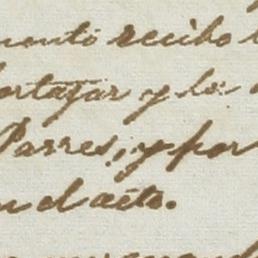 mento recibo
ortazar y la
Parres, y por
en el acto.